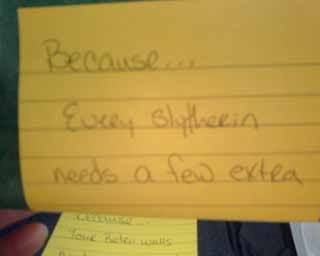 Because...
Every Slytherin
needs a few extra
Because...
Your
walls